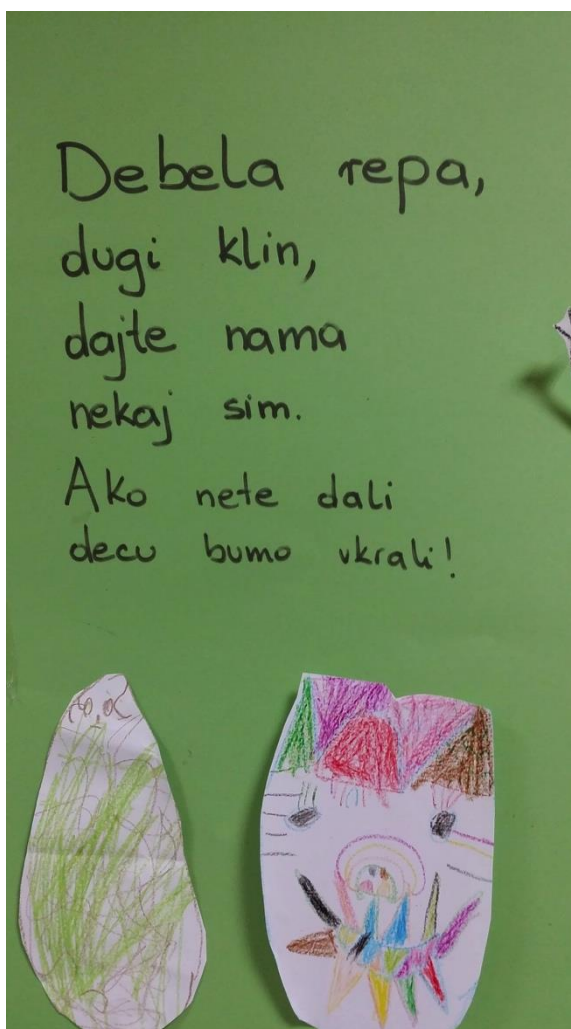 Debela repa,
dugi klin,
dajte nama
nekaj sim.
Ako nete dali
decu bumo vkrali!